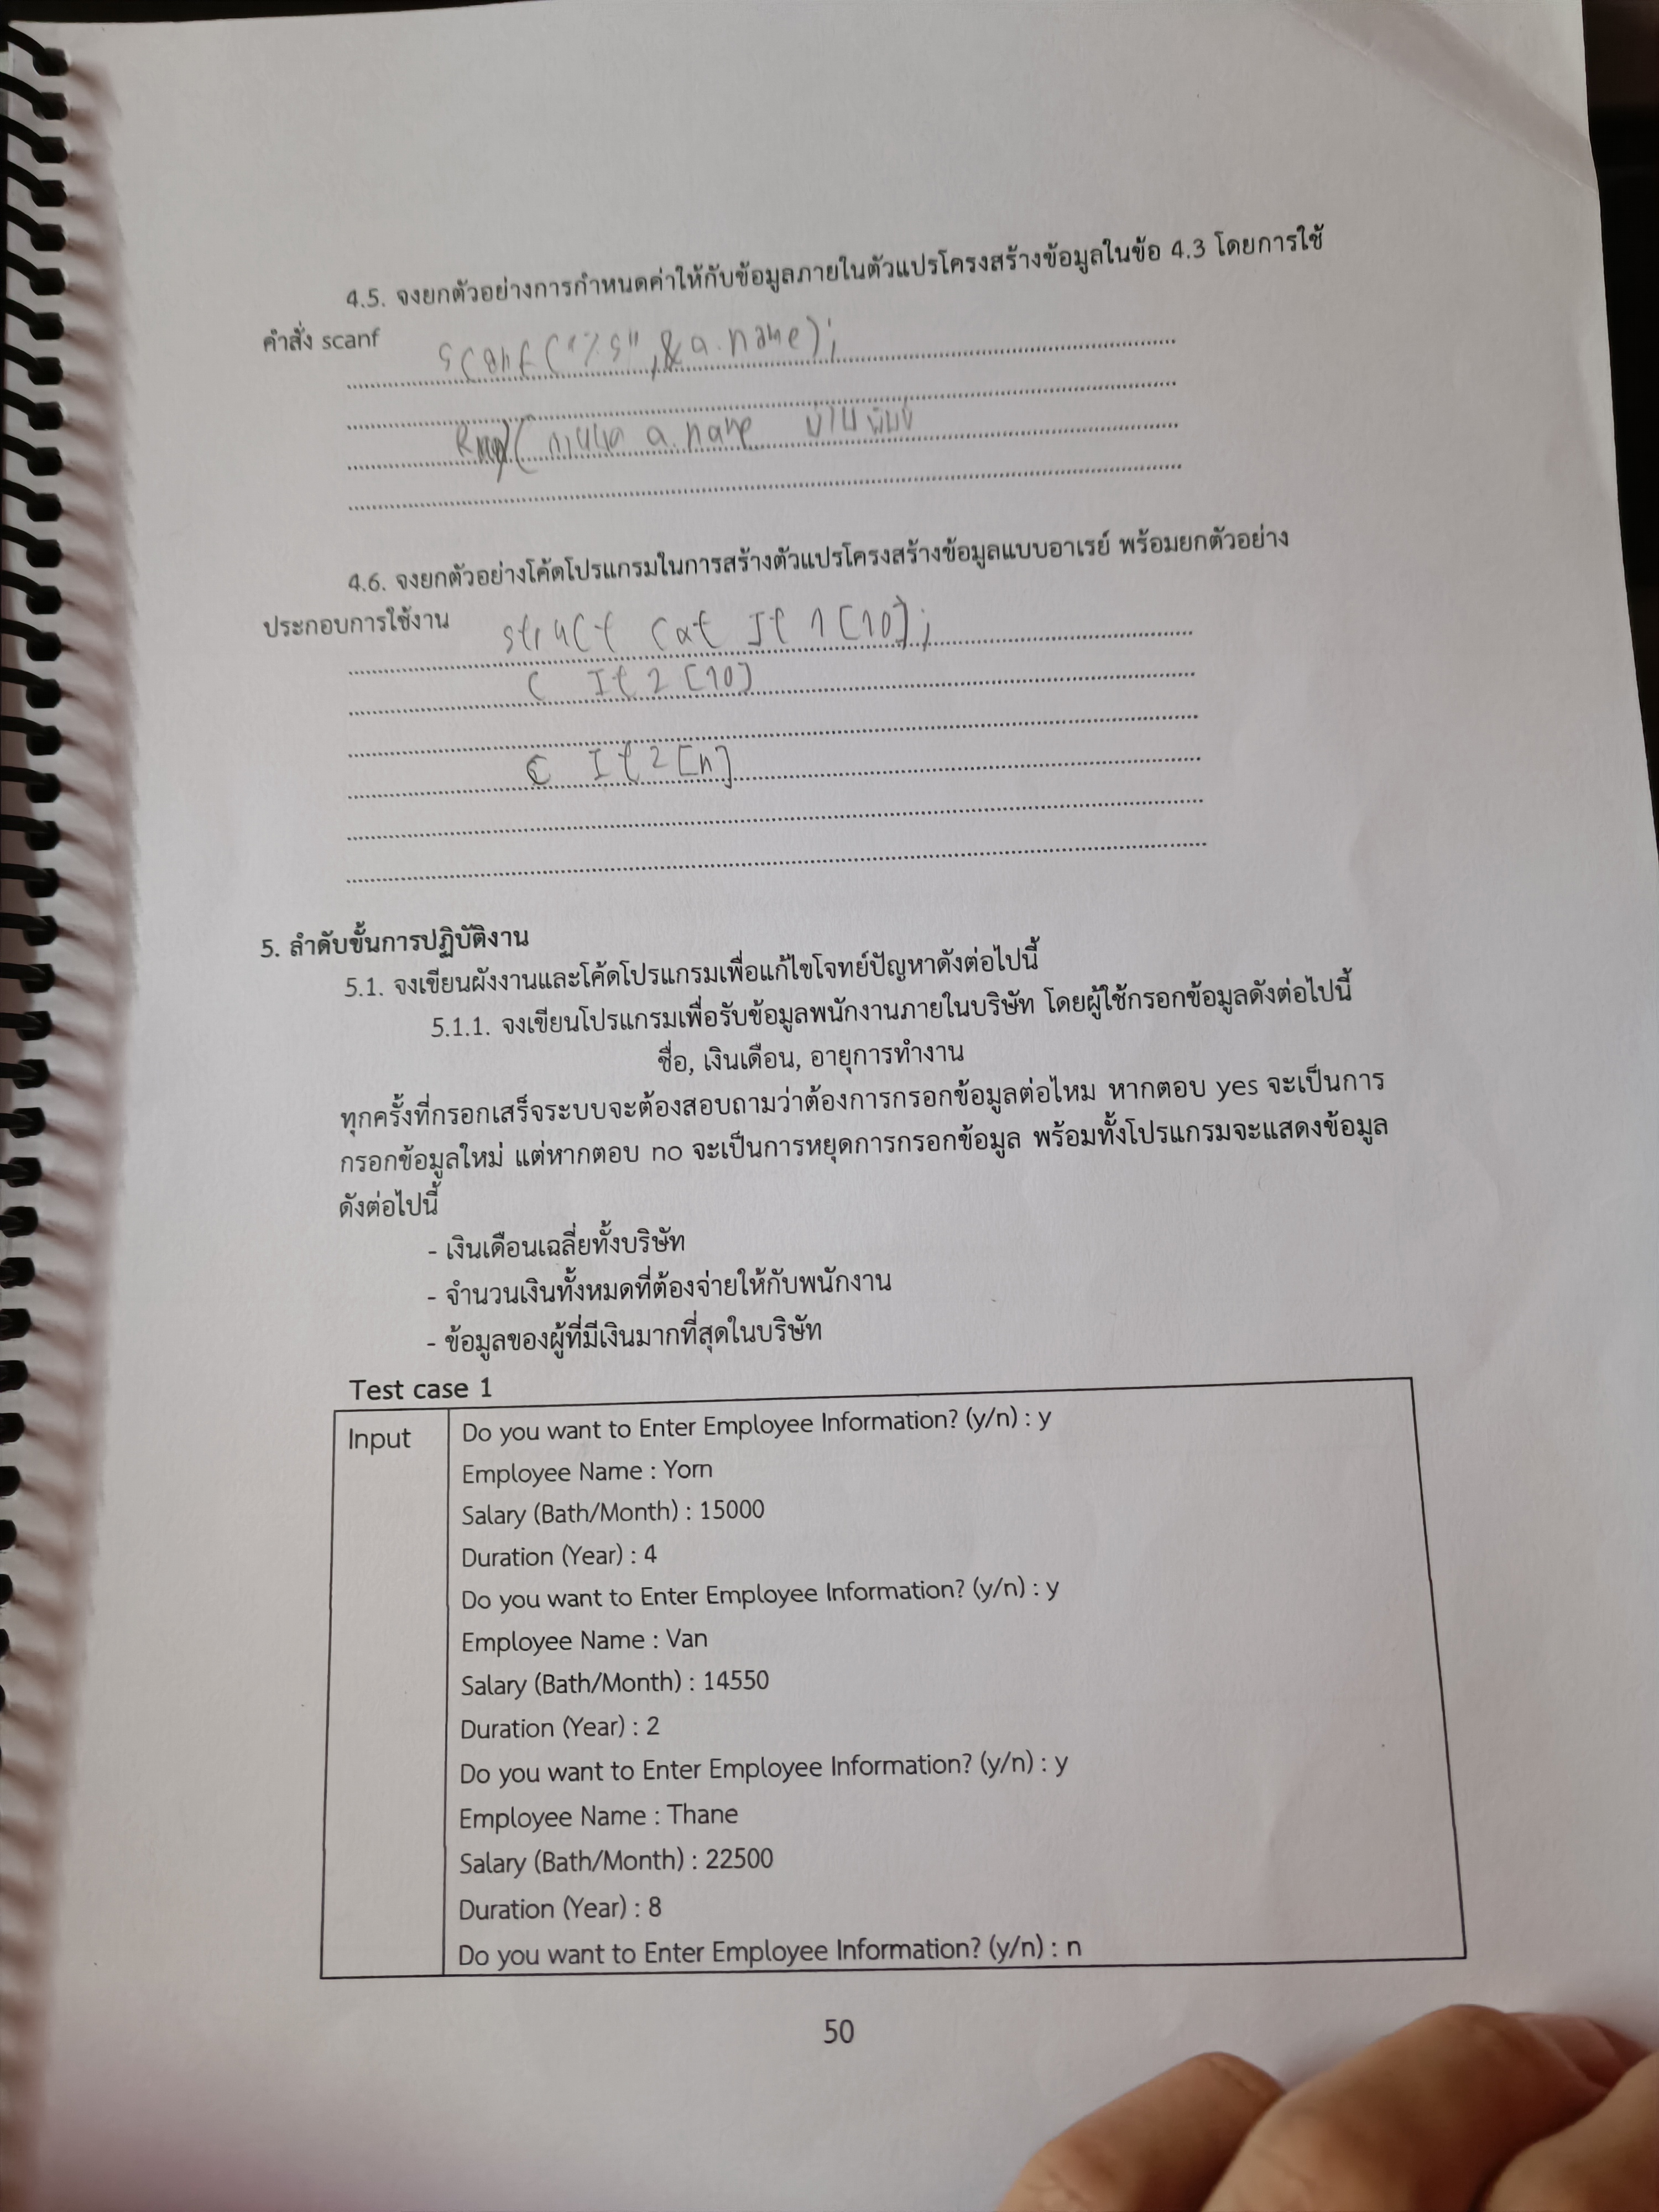 4.5. จงยกตัวอย่างการกำหนดค่าให้กับข้อมูลภายในตัวแปรโครงสร้างข้อมูลในข้อ 4.3 โดยการใช้
คำสั่ง scanf
scanf("%s",&a.name);
a.name
4.6. จงยกตัวอย่างโค้ดโปรแกรมในการสร้างตัวแปรโครงสร้างข้อมูลแบบอาเรย์ พร้อมยกตัวอย่าง
ประกอบการใช้งาน
struct Cat It1[10];
C It2[10]
C It2[n]
5. ลำดับขั้นการปฏิบัติงาน
5.1. จงเขียนผังงานและโค้ดโปรแกรมเพื่อแก้ไขโจทย์ปัญหาดังต่อไปนี้
5.1.1. จงเขียนโปรแกรมเพื่อรับข้อมูลพนักงานภายในบริษัท โดยผู้ใช้กรอกข้อมูลดังต่อไปนี้
ชื่อ, เงินเดือน, อายุการทำงาน
ทุกครั้งที่กรอกเสร็จระบบจะต้องสอบถามว่าต้องการกรอกข้อมูลต่อไหม หากตอบ yes จะเป็นการ
กรอกข้อมูลใหม่ แต่หากตอบ no จะเป็นการหยุดการกรอกข้อมูล พร้อมทั้งโปรแกรมจะแสดงข้อมูล
ดังต่อไปนี้
- เงินเดือนเฉลี่ยทั้งบริษัท
- จำนวนเงินทั้งหมดที่ต้องจ่ายให้กับพนักงาน
- ข้อมูลของผู้ที่มีเงินมากที่สุดในบริษัท
Test case 1
Input
Do you want to Enter Employee Information? (y/n) : y
Employee Name : Yorn
Salary (Bath/Month) : 15000
Duration (Year) : 4
Do you want to Enter Employee Information? (y/n) : y
Employee Name : Van
Salary (Bath/Month) : 14550
Duration (Year) : 2
Do you want to Enter Employee Information? (y/n) : y
Employee Name : Thane
Salary (Bath/Month) : 22500
Duration (Year) : 8
Do you want to Enter Employee Information? (y/n) : n
50